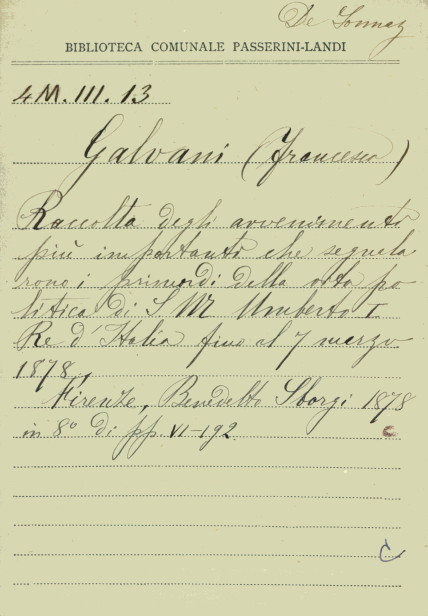 De Sonnaz
BIBLIOTECA COMUNALE PASSERINI-LANDI
4M.III.13
Galvani (Francesco)
Raccolta degli avvenimenti
più importanti che segnala
rono i primordi della vita po
litica di S. M. Umberto I
Re d'Italia fino al 7 marzo
1878.
Firenze, Benedetto Sborgi 1878
in 8° di pp. VI-192
C